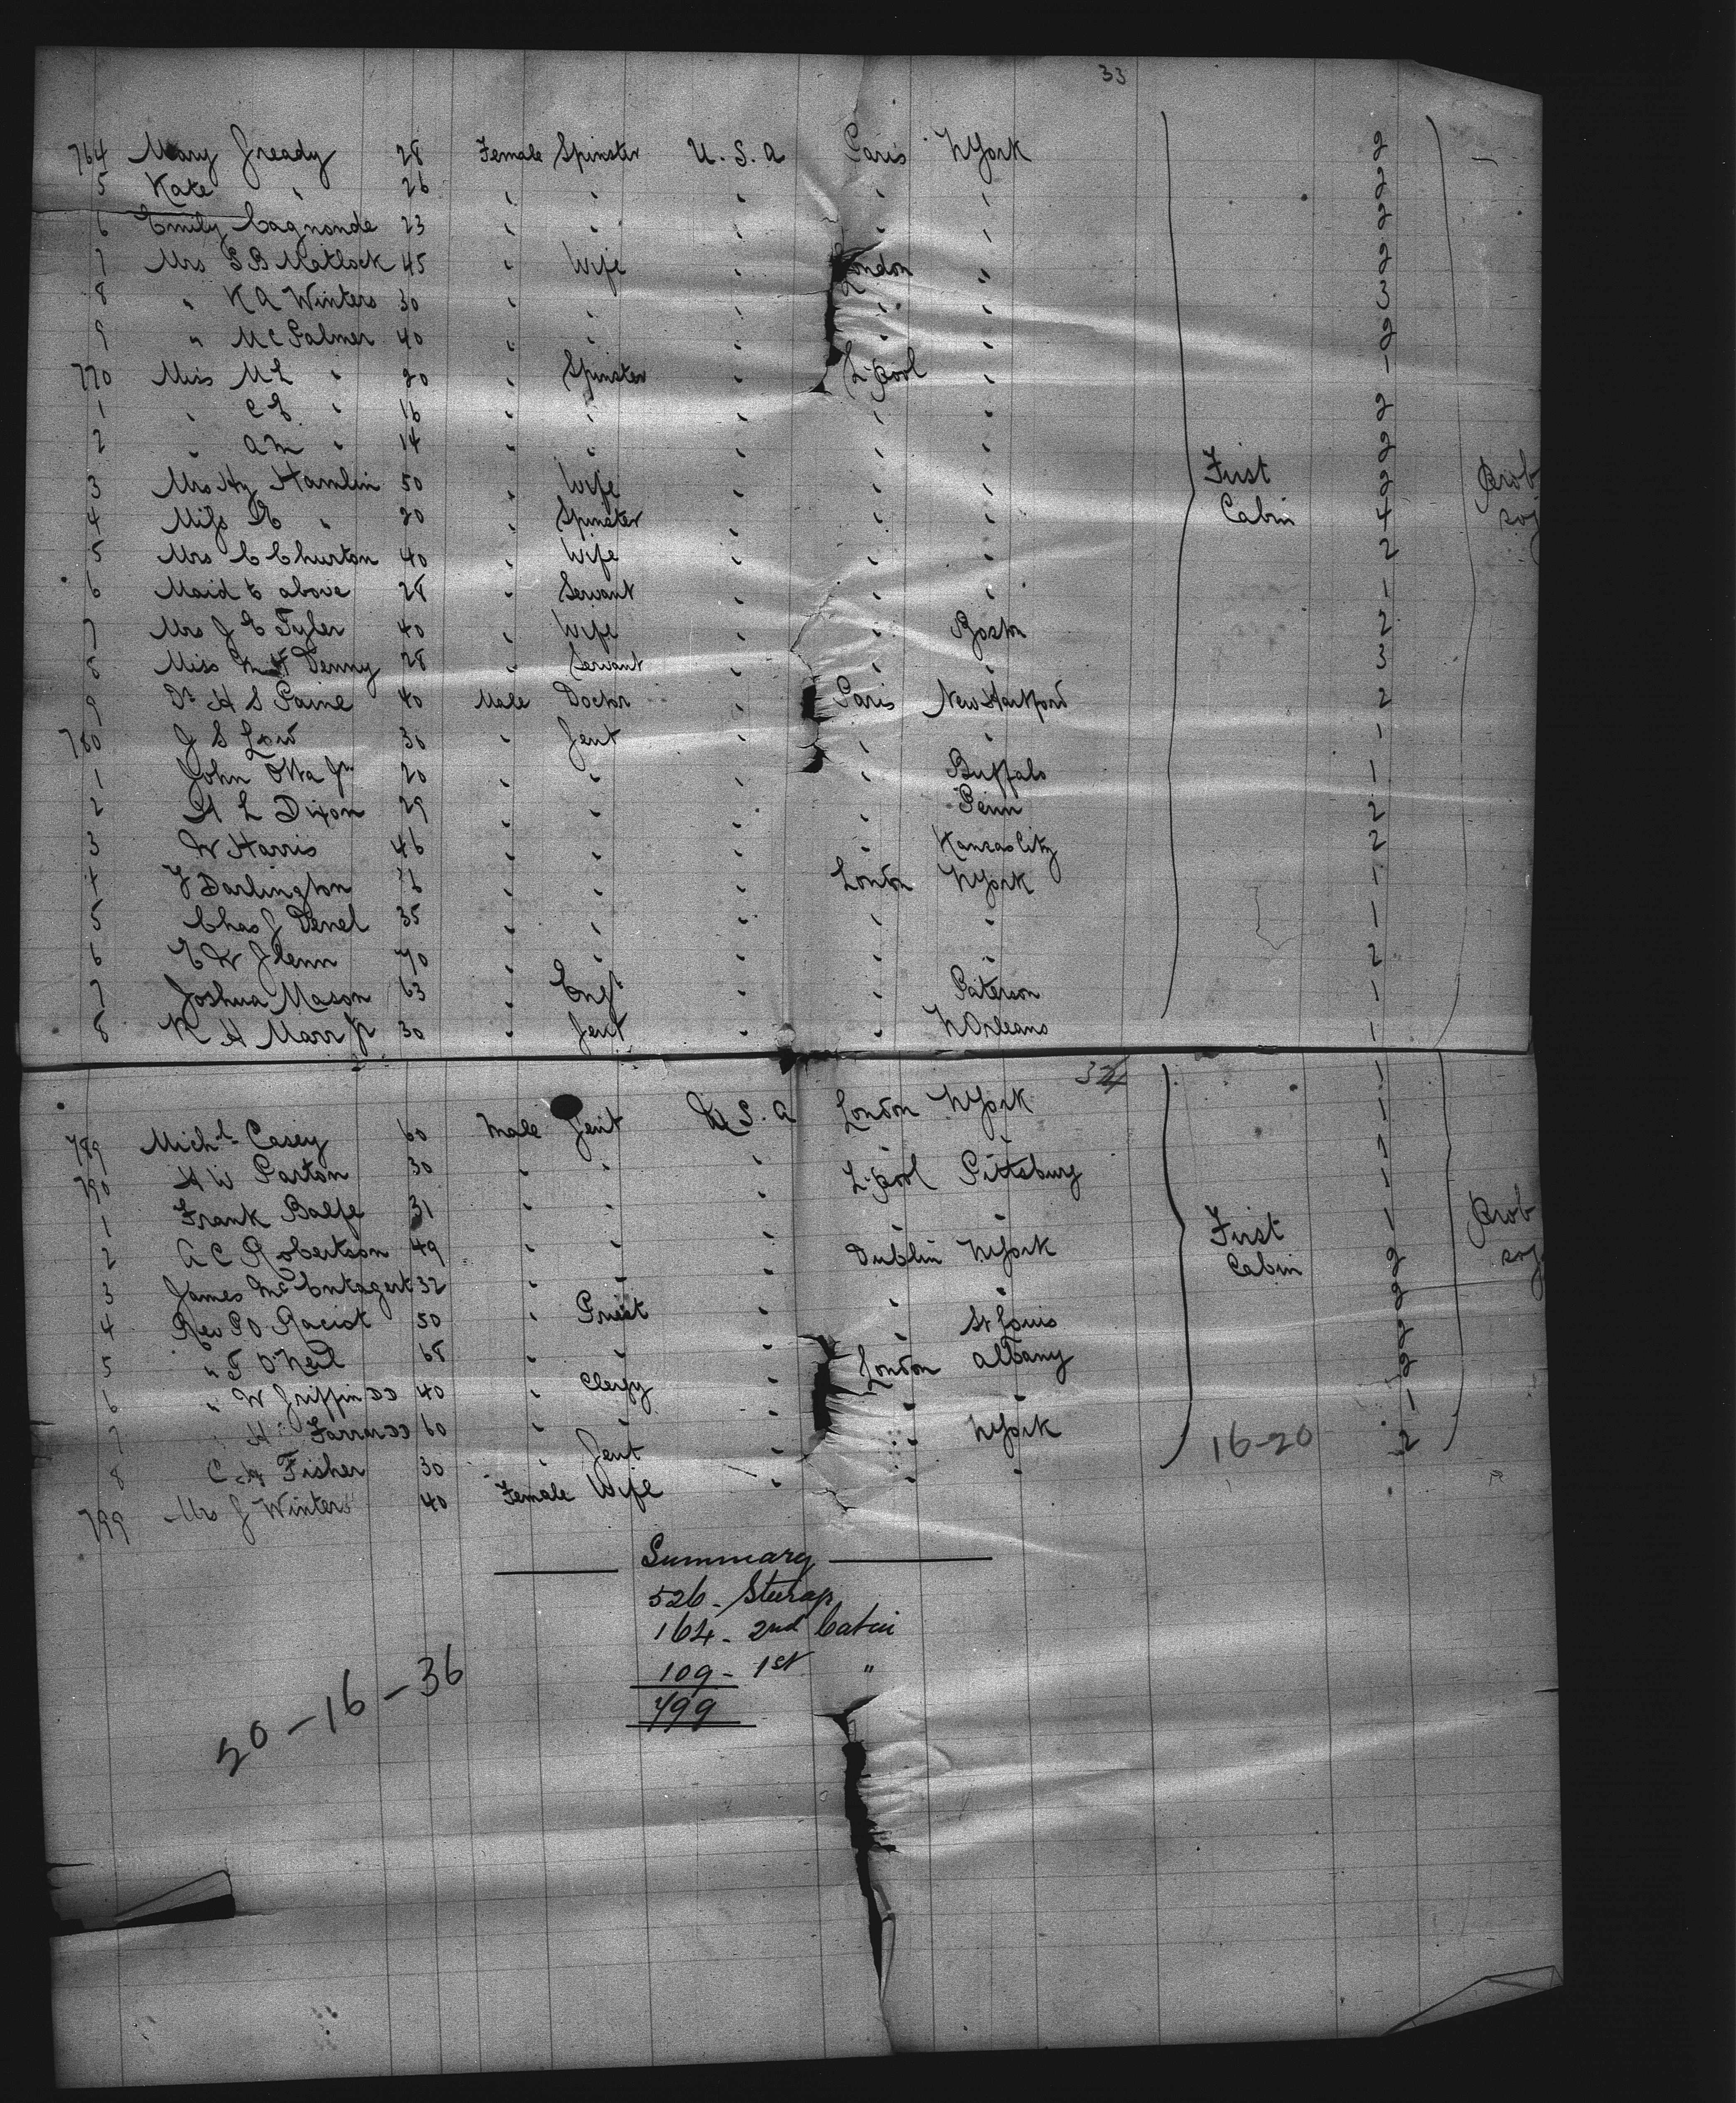 33
764 Mary Gready 28 Female Spinster U.S.A Paris NYork 2
5 Kate " 26 " " " " " 2
6 Emily Cagnonde 23 " " " " " 2
7 Mrs S B Matlock 45 " Wife " London " 2
8 " K A Winters 30 " " " " " 3
9 " M C Palmer 40 " " " " " 2
770 Miss M L " 20 " Spinster " L'pool " 1
1 " C E " 16 " " " " " 2
2 " A M " 14 " " " " " 2
3 Mrs Hy Hamlin 50 " Wife " " " First 2 Prob
4 Miss E " 20 " Spinster " " " Cabin 4 soj
5 Mrs C Churton 40 " Wife " " " 2
6 Maid to above 28 " Servant " " " 1
7 Mrs J E Tyler 40 " Wife " " Boston 2
8 Miss M H Denny 28 " Servant " " " 3
9 Dr H S Paine 40 Male Doctor " Paris New Hartford 2
780 J S Low 30 " Gent " " " 1
1 John Otta Jr 20 " " " " Buffalo 1
2 H L Dixon 29 " " " " Penn 2
3 W Harris 46 " " " " Kansas City 2
4 Darlington " " " London NYork 1
5 Chas J Denel 35 " " " " " 1
6 E W Glenn 70 " " " " " 2
7 Joshua Mason 63 " Engr " " Paterson 1
8 R H Marr Jr 30 " Gent " " N Orleans 1
34 1
789 Michl Casey 60 Male Gent U.S.A London NYork 1
790 H W Parton 30 " " " " " 1
1 Frank Balfe 31 " " " L'pool Pittsburg 1
2 A C Robertson 49 " " " " " First 1 Prob
3 James McEntagert 32 " " " Dublin NYork Cabin 2 soj
4 Rev P O Raciot 50 " Priest " " " 2
5 " T O'Neil 68 " " " " St Louis 2
6 " W Griffin DD 40 " Clergy " London Albany 2
7 " H Farrar DD 60 " " " " " 1
8 C H Fisher 30 " Gent " " NYork 16-20 2
799 Mrs J Winters 40 Female Wife " " "
Summary
526 - Steerage
164 - 2nd Cabin
109 - 1st "
799
20-16-36